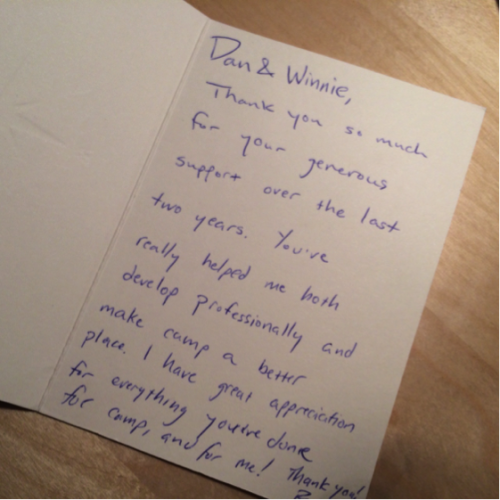 Dan & Winnie,
Thank you so much
for your generous
support over the last
two years. You've
really helped me both
develop professionally and
make camp a better
place. I have great appreciation
for everything you've done
for camp, and for me! Thank you!